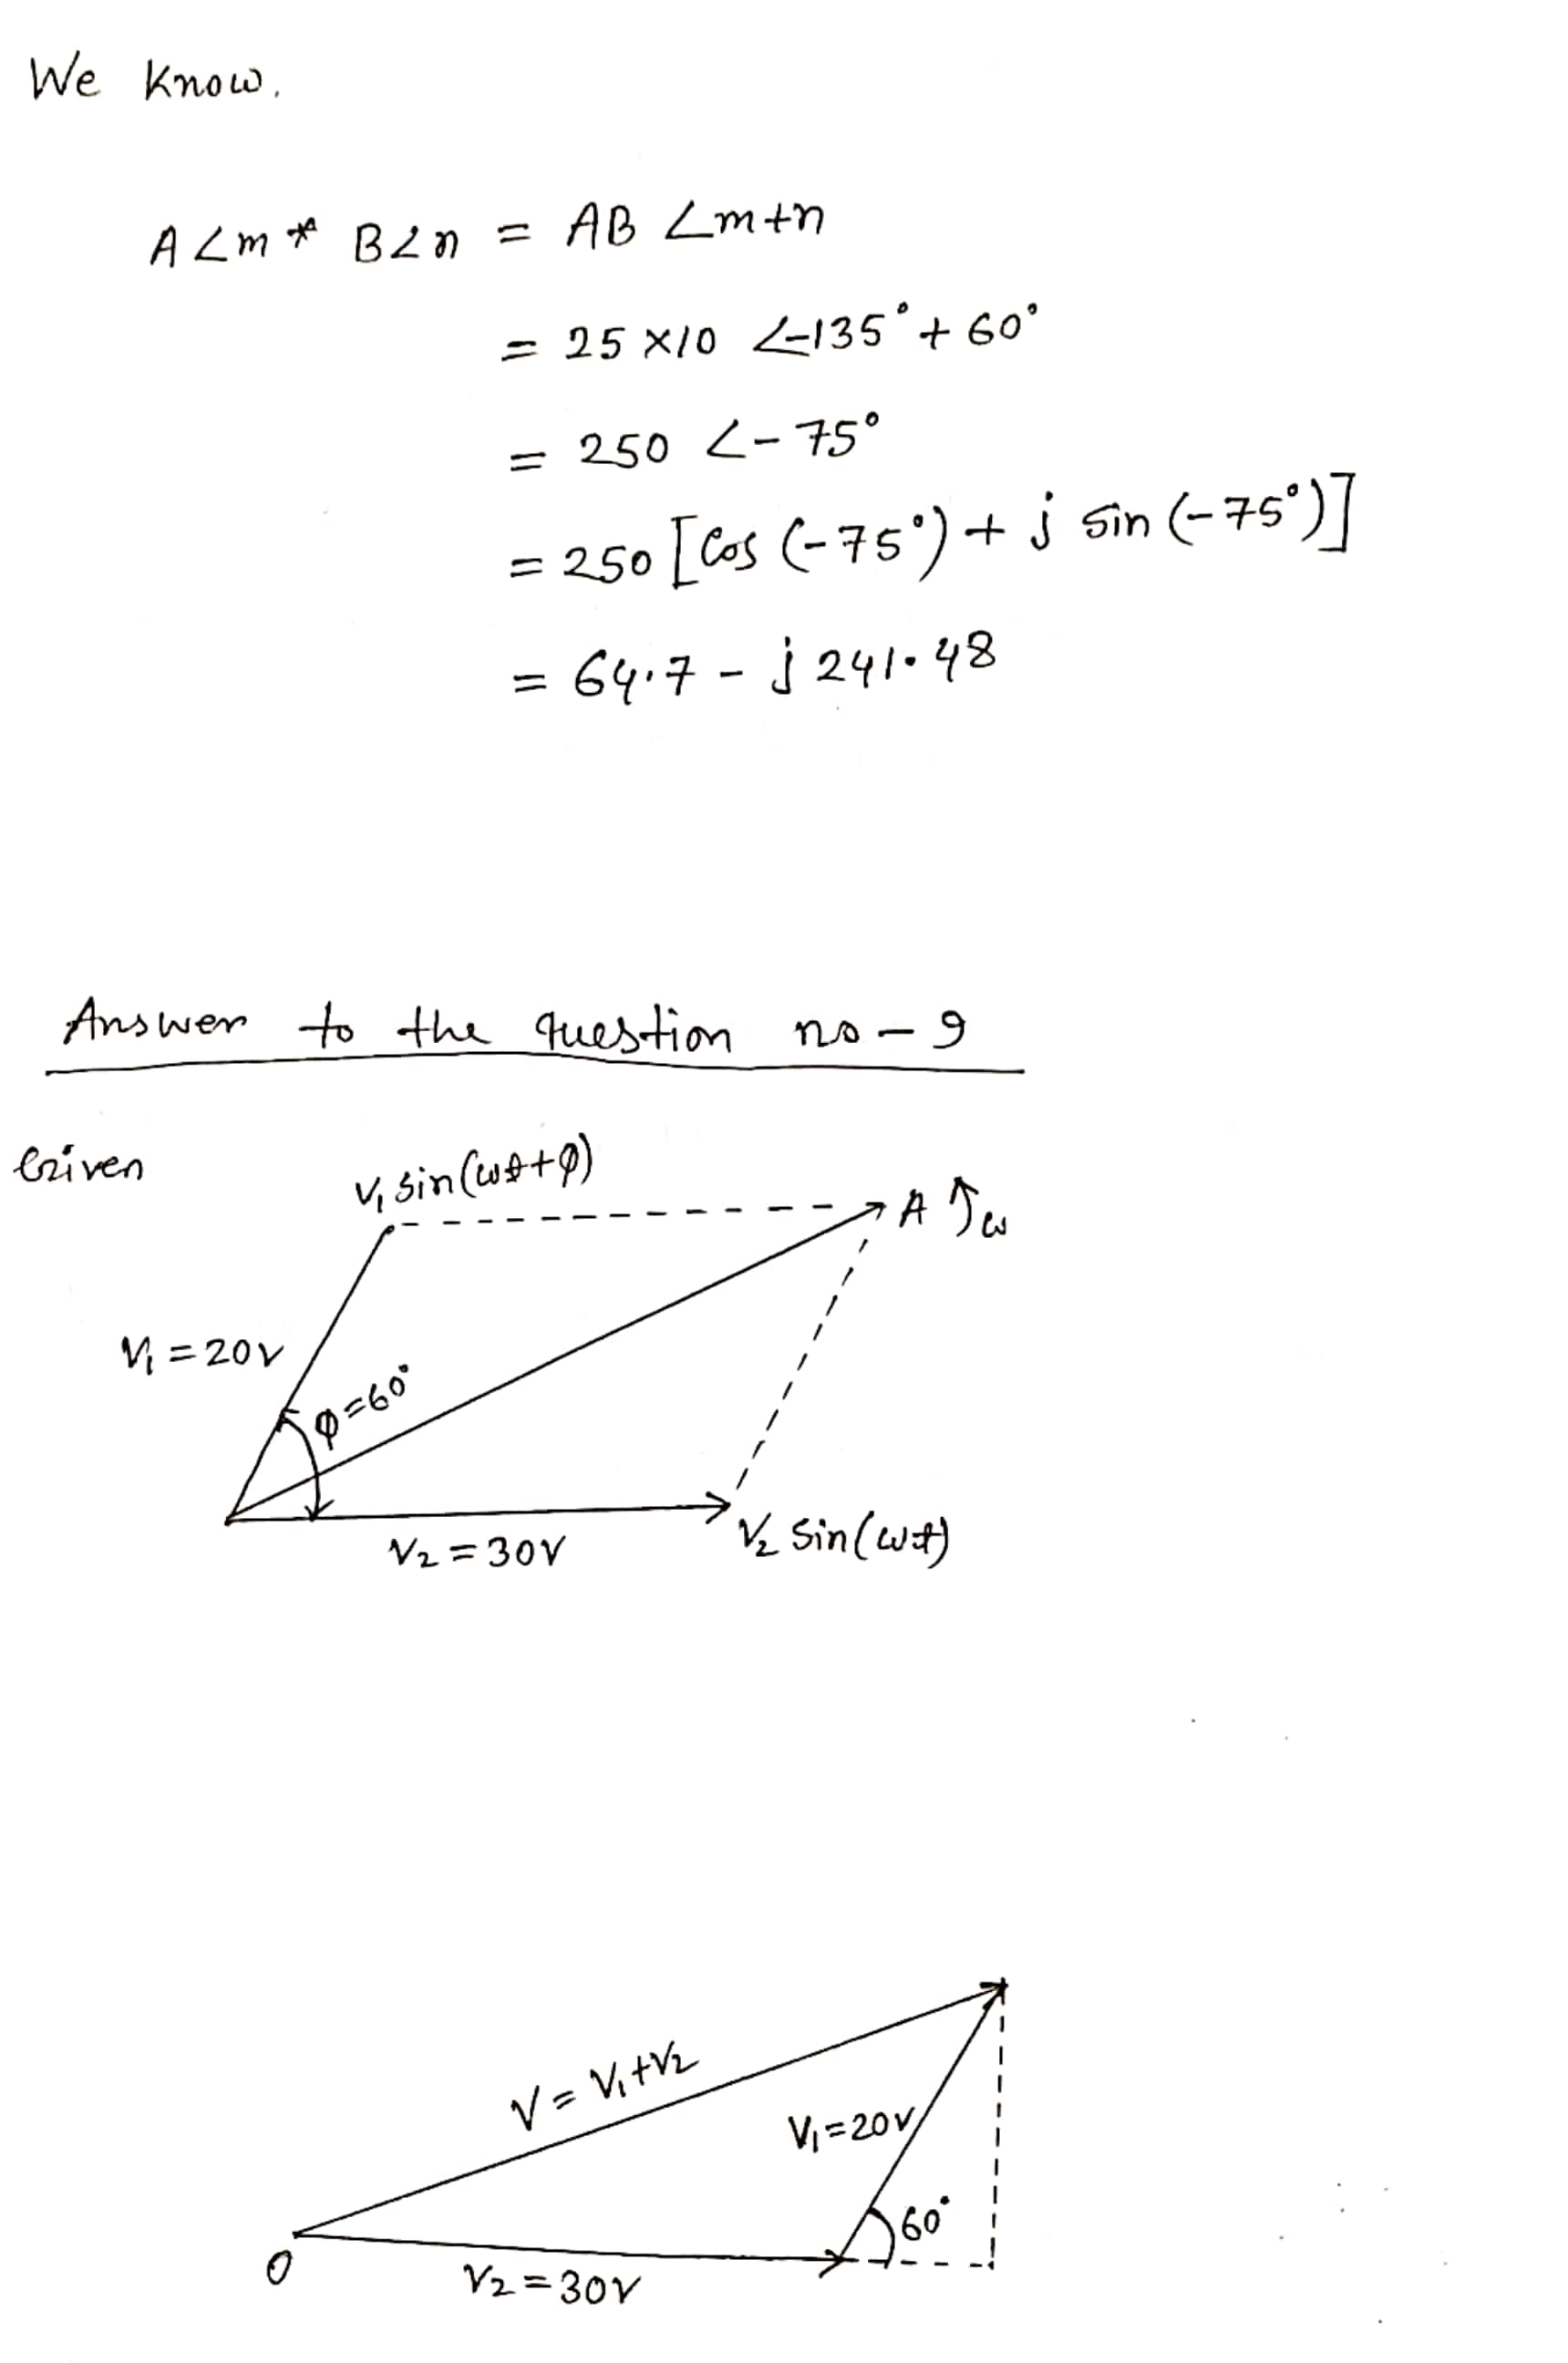 We Know.
A∠m * B∠n = AB ∠m+n
= 25 ×10 ∠-135° + 60°
= 250 ∠-75°
= 250 [Cos (-75°) + j sin (-75°)]
= 64.7 - j 241.48
Answer to the question no - 9
Given
V₁ sin(ωt+φ)
A ω
V₁ = 20v
φ=60°
V₂ = 30V
V₂ sin(ωt)
V = V₁+V₂
V₁=20V
60°
O
V₂ = 30V